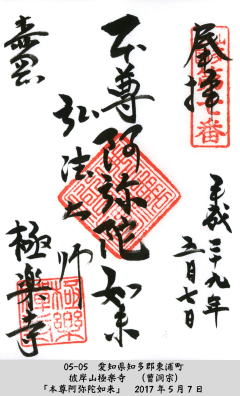 奉拝
平成二十九年
五月七日
本尊阿弥陀如来
弘法大師
極楽寺
05-05　愛知県知多郡東浦町
彼岸山極楽寺　(曹洞宗)
「本尊阿弥陀如来」　2017年5月7日